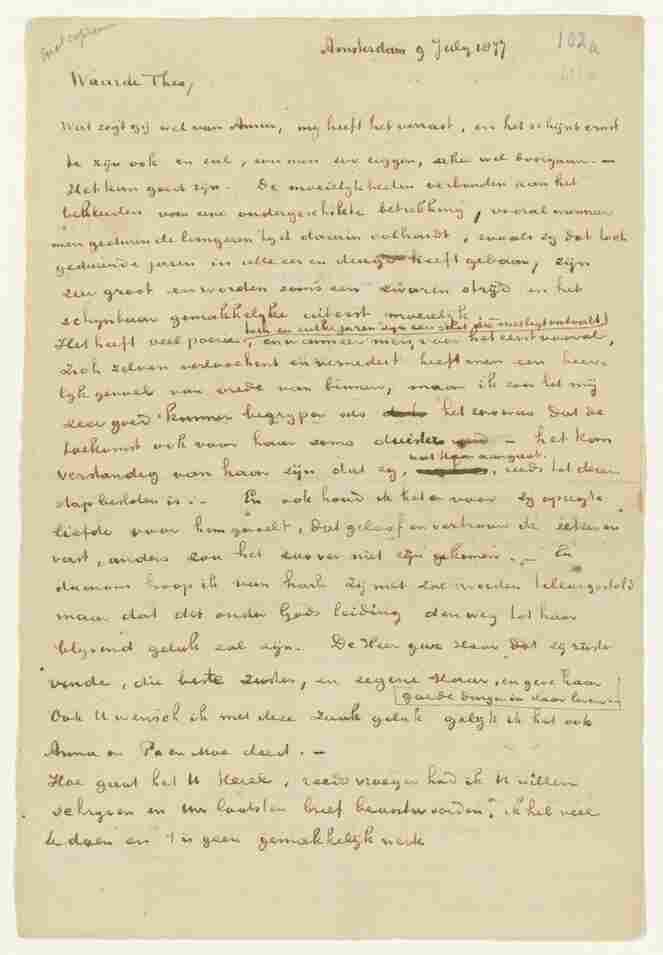 Amsterdam 9 July 1877
102a
Waarde Theo,
Wat zegt gij wel van Anna, mij heeft het verrast, en het schijnt ernst
te zijn ook en zal, zou men zoo zeggen, zeker wel doorgaan. —
Het kan goed zijn. De moeielijkheden verbonden aan het
bekleeden van eene ondergeschikte betrekking, vooral wanneer
men gedurende langeren tijd daarin volhardt, zooals zij dat toch
gedurende jaren in alle eer en deugd heeft gedaan, zijn
zeer groot en worden soms een zwaren strijd en het
schijnbaar gemakkelijke uiterst moeielijk
toch en zulke jaren zijn een schat die
Het heeft veel en wanneer men, voor het eerst vooral,
zich zelven verloochent en vernedert heeft men een heer-
lijk gevoel van vrede van binnen, maar ik kan het mij
zeer goed kunnen begrijpen als het ware dat de
toekomst ook voor haar soms duister — het kan
wat Haar aangaat
verstandig van haar zijn dat zij, , reeds tot deze
stap besloten is. — En ook houd ik het er voor zij opregte
liefde voor hem gevoelt, dat geloof en vertrouw ik zeker en
vast, anders zou het zoover niet zijn gekomen. — En
daarom hoop ik van harte zij niet zal worden teleurgesteld
maar dat dit onder Gods leiding den weg tot haar
blijvend geluk zal zijn. De Heer geve Haar dat zij ruste
vinde, die beste zuster, en zegene Haar, en geve haar
goede dingen in Haar leven
Ook U wensch ik met deze zaak geluk gelijk ik het ook
Anna en Pa en Moe deed. —
Hoe gaat het U Kerel, reeds vroeger had ik U willen
schrijven en Uw laatsten brief beantwoorden; ik heb veel
te doen en 't is geen gemakkelijk werk